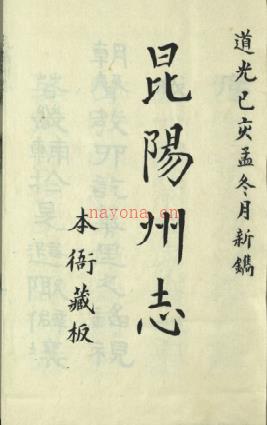 道光己亥孟冬月新鐫
昆陽州志
本衙藏板
nayona.cn